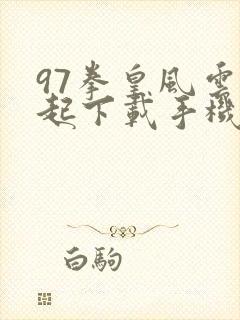 97拳皇風雲
起下載手機
白駒